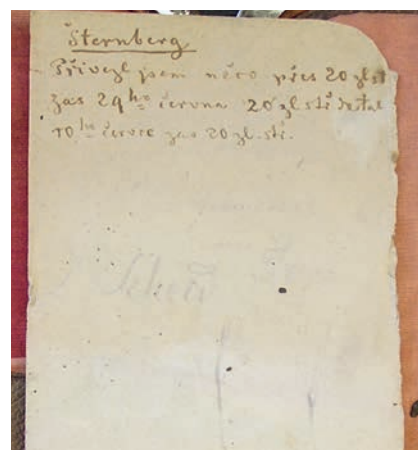 Šternberg
Přivezl jsem něco přes 20 zl stř
zas 29ho června 20 zl stř dostal
10ho července zas 20 zl. stř.